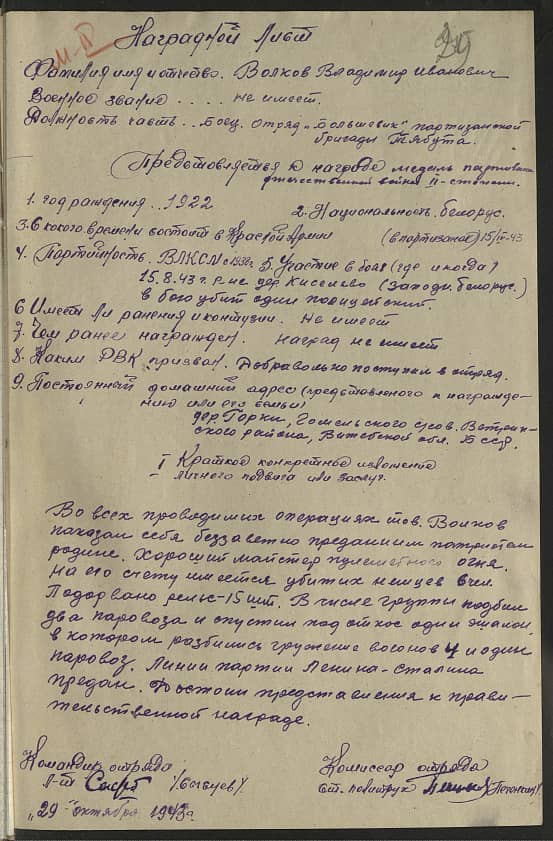 М-II
Наградной лист
Фамилия имя и отчество. Волков Владимир Иванович
Военное звание .... не имеет.
Должность часть .. Боец отряд "Большевик" партизанской
бригады Тябута.
Представляется к награде медаль партизан
отечественной войны II-степени.
1. год рождения .. 1922 2. Национальность. белорус.
3. С какого времени состоит в Красной Армии (в партизанах) 15/II-43
4. Партийность. ВЛКСМ с 1939г. 5. Участие в боях (где и когда)
15.8.43 г. в р-не дер. (Заподн. белорус.)
в бою убит один полицейский.
6 Имеет ли ранения и контузии. Не имеет
7. Чем ранее награжден. наград не имеет
8. Каким РВК призван. Добравольно поступил в отряд.
9. Постоянный домашний адрес (представленного к награжде-
нию или его семьи)
дер. Горки, Гомельского с/сов. Ветрин-
ского района, Витебской обл. БССР.
I Краткое конкретное изложение
личного подвига или заслуг.
Во всех проводимых операциях тов. Волков
показал себя беззаветно преданним патриотам
родине. Хороший майстер пулеметного огня.
на его счету имеется убитих немцев 8 чел.
Подорвано рельс-15 шт. В числе группы подбил
два паровоза и спустил под откос один эшалон,
в котором разбились гружение вогонов 4 и один
паровоз. Линии партии Ленина-Сталина
предан. Достоин представления к прави-
тельственной награде.
Командир отряда Комиссар отряда
л-т ст. политрук
"29" октября 1943г.